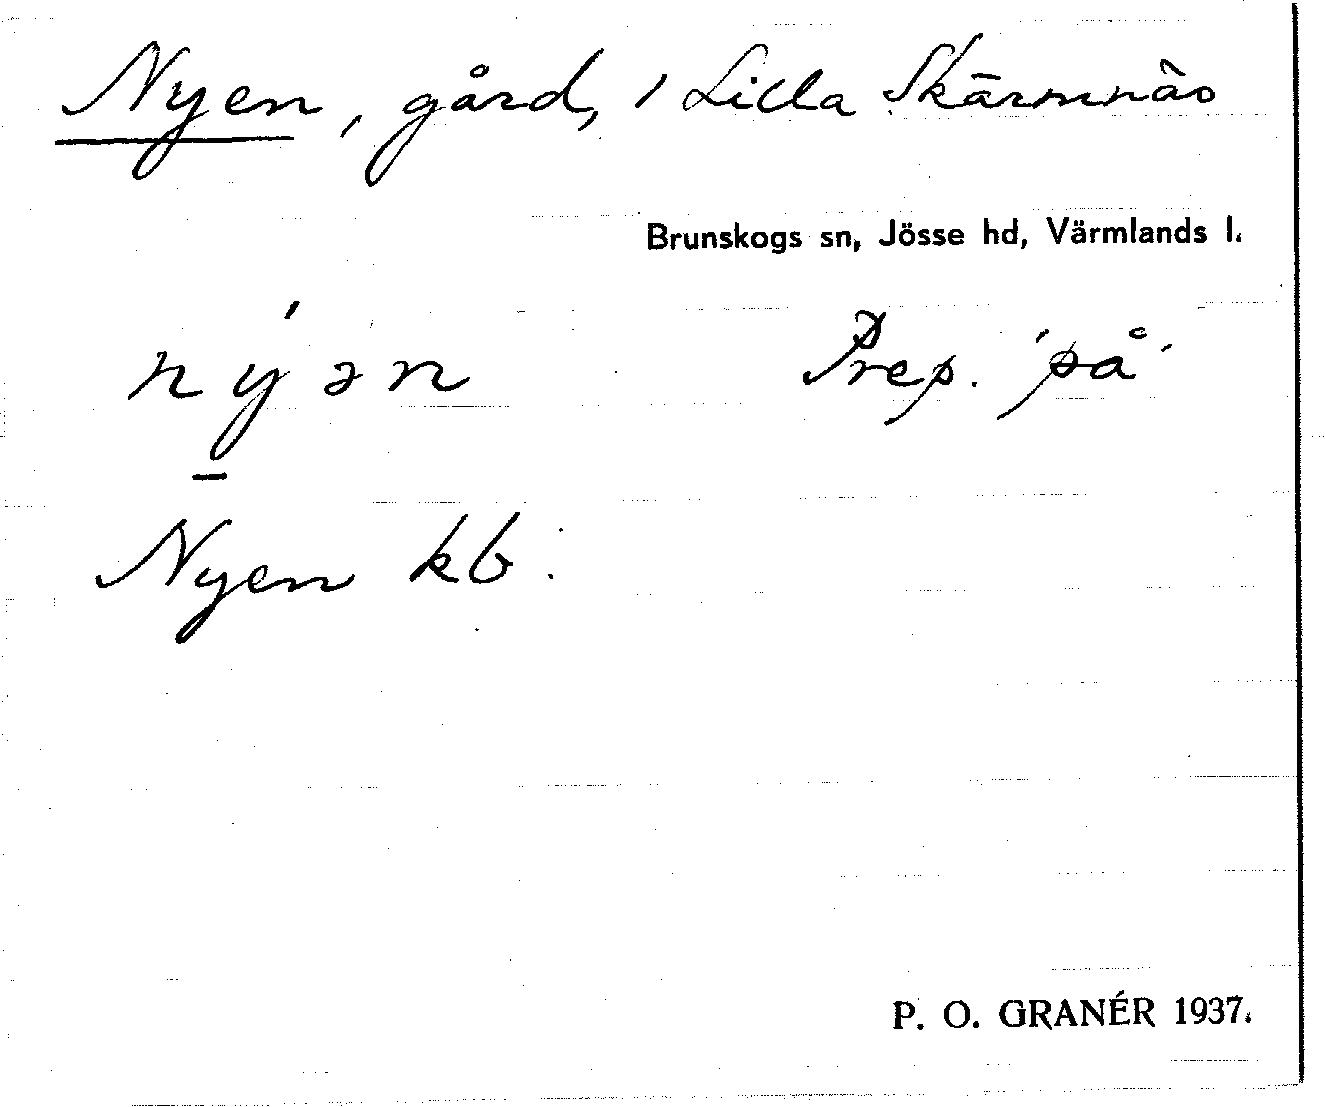 Nyen, gård, i Lilla Skärmnäs
Brunskogs sn, Jösse hd, Värmlands l.
nýən Prep. 'på'
Nyen kb.
P. O. GRANÉR 1937.